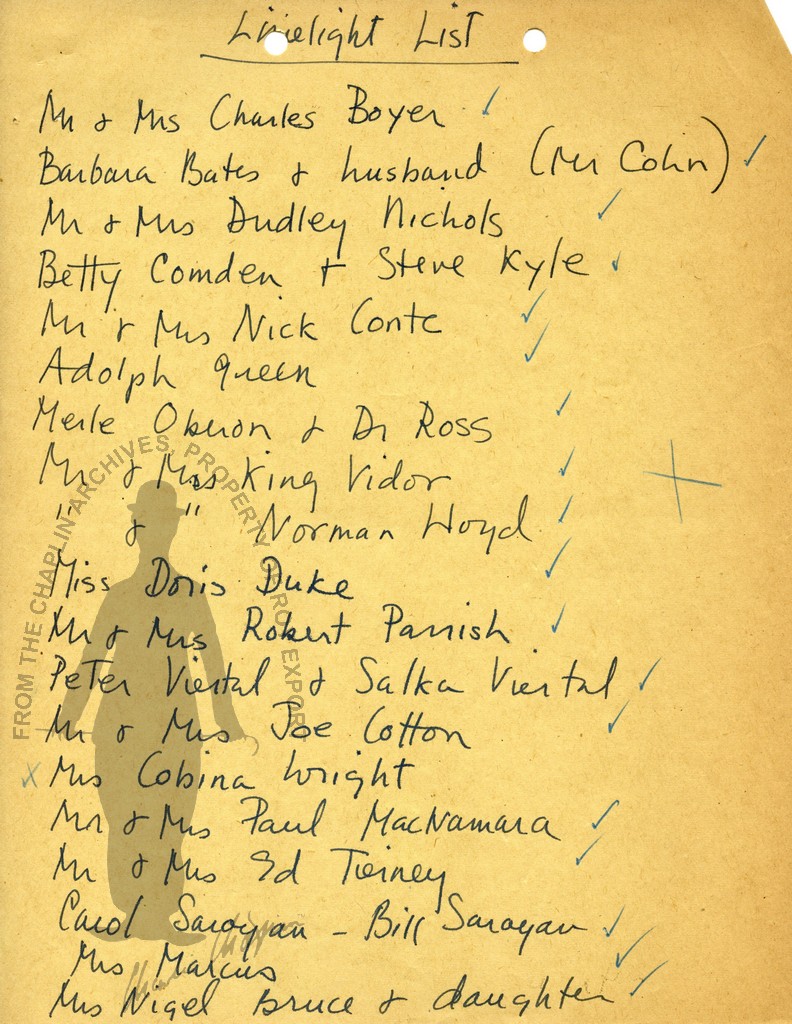 Limelight List
Mr & Mrs Charles Boyer ✓
Barbara Bates & husband (Mr Cohn) ✓
Mr & Mrs Dudley Nichols ✓
Betty Comden + Steve Kyle ✓
Mr & Mrs Nick Conte ✓
Adolph Green ✓
Merle Oberon & Dr Ross ✓
Mr & Mrs King Vidor ✓
" & " Norman Lloyd ✓
Miss Doris Duke ✓
Mr & Mrs Robert Parrish ✓
Peter Viertal & Salka Viertal ✓
Mr & Mrs Joe Cotton ✓
X Mrs Cobina Wright
Mr & Mrs Paul MacNamara ✓
Mr & Mrs Ed Tierney ✓
Carol Saroyan - Bill Saroyan ✓
Mrs Marcus ✓
Mrs Nigel Bruce & daughter ✓
FROM THE CHAPLIN ARCHIVES, PROPERTY OF ROY EXPORT